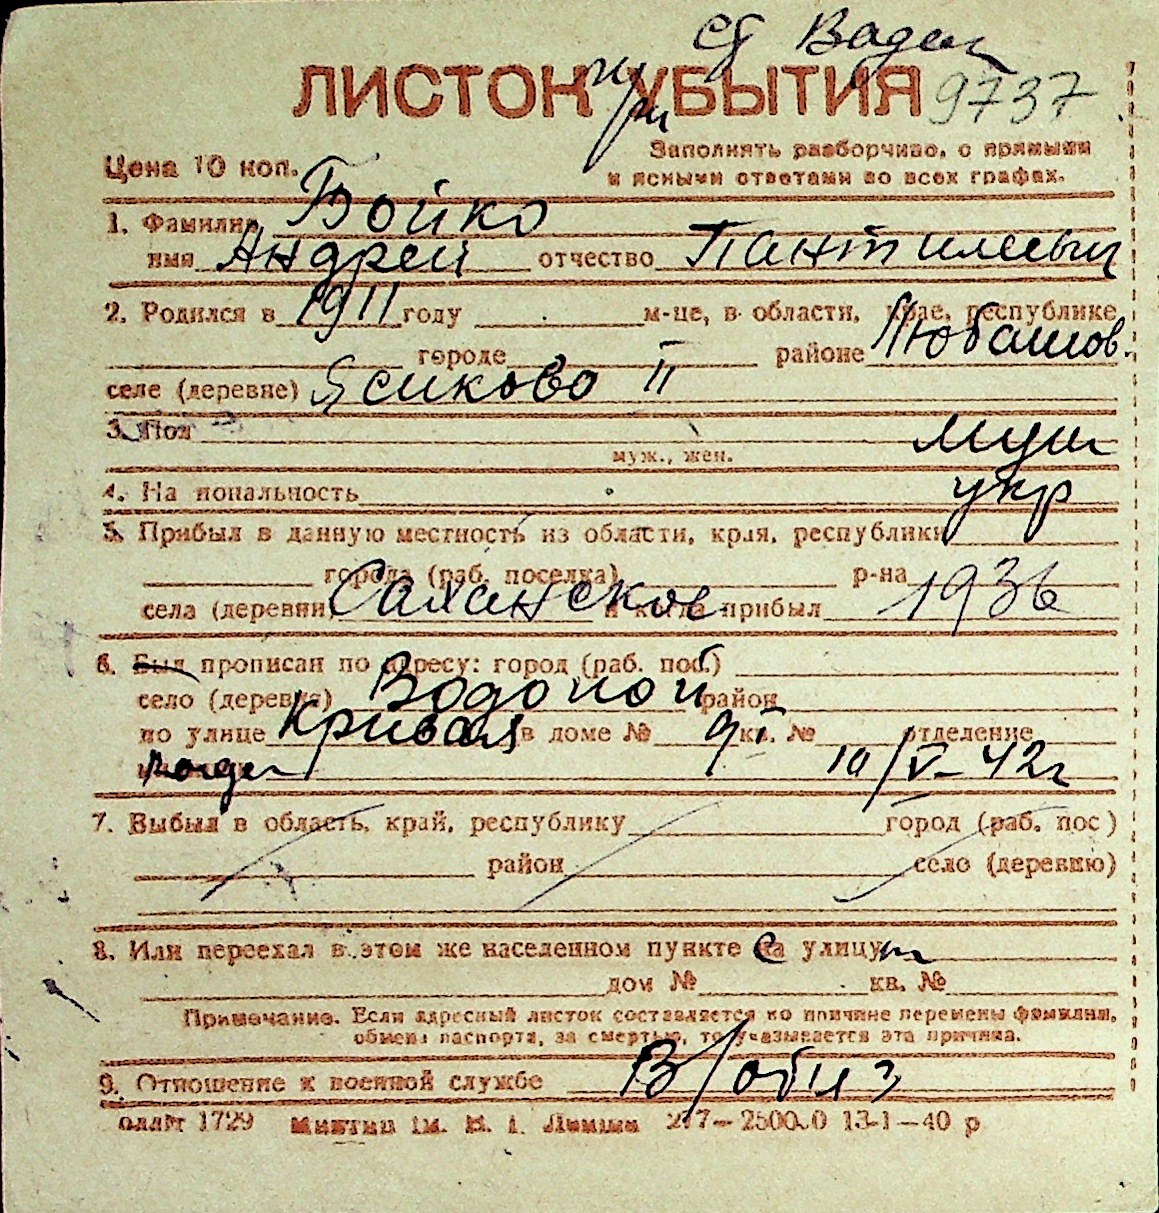 ЛИСТОК УБЫТИЯ 9737
Цена 10 коп.
Заполнять разборчиво, с прямыми
и ясными ответами во всех графах.
1. Фамилия Бойко
имя Андрей отчество Пантилеевич
2. Родился в 1911 году м-це, в области, крае, республике
городе районе Любашов.
селе (деревне) Ясиково II
3. Пол муш
муж., жен.
4. Национальность укр
5. Прибыл в данную местность из области, края, республики
города (раб. поселка) р-на
села (деревни) Саханское и когда прибыл 1936
6. Был прописан по адресу: город (раб. пос.)
село (деревня) Водопой район
по улице Кривая в доме № 91 кв. № отделение
10/V-42г
7. Выбыл в область, край, республику город (раб. пос)
район село (деревню)
8. Или переехал в этом же населенном пункте на улицу
дом № кв. №
Примечание. Если адресный листок составляется по причине перемены фамилии,
обмена паспорта, за смертью, то указывается эта причина.
9. Отношение к военной службе В/обяз
1729 2500.0 13-1-40 р